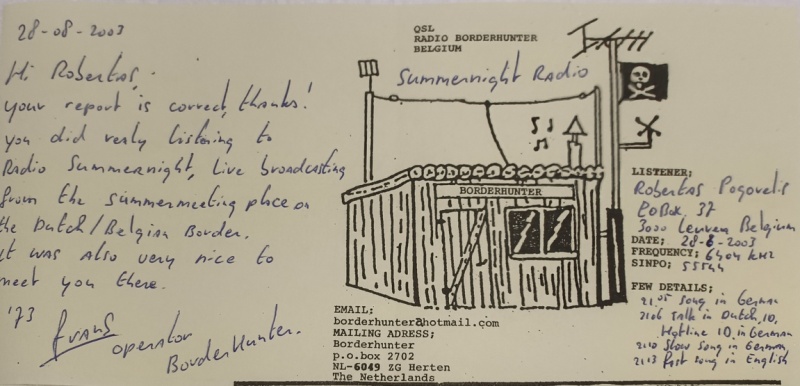 28-08-2003
Hi Robertas,
your report is correct, thanks!
you did verly listening to
Radio Summernight, Live broadcasting
from the summermeeting place on
the Dutch/Belgian Border.
it was also very nice to
meet you there.
'73
Frans
operator
BorderHunter.
QSL
RADIO BORDERHUNTER
BELGIUM
Summernight Radio
BORDERHUNTER
EMAIL;
borderhunter@hotmail.com
MAILING ADRESS;
Borderhunter
p.o.box 2702
NL-6049 ZG Herten
The Netherlands
LISTENER;
Robertas Pogorelis
POBox, 37
3000 Leuven Belgium
DATE; 28-6-2003
FREQUENCY; 6404 kHz
SINPO; 55544
FEW DETAILS;
21.05 song in German
2106 talk in Dutch, ID,
Hotline ID, in German
2110 Slow Song in German
2113 fast song in English